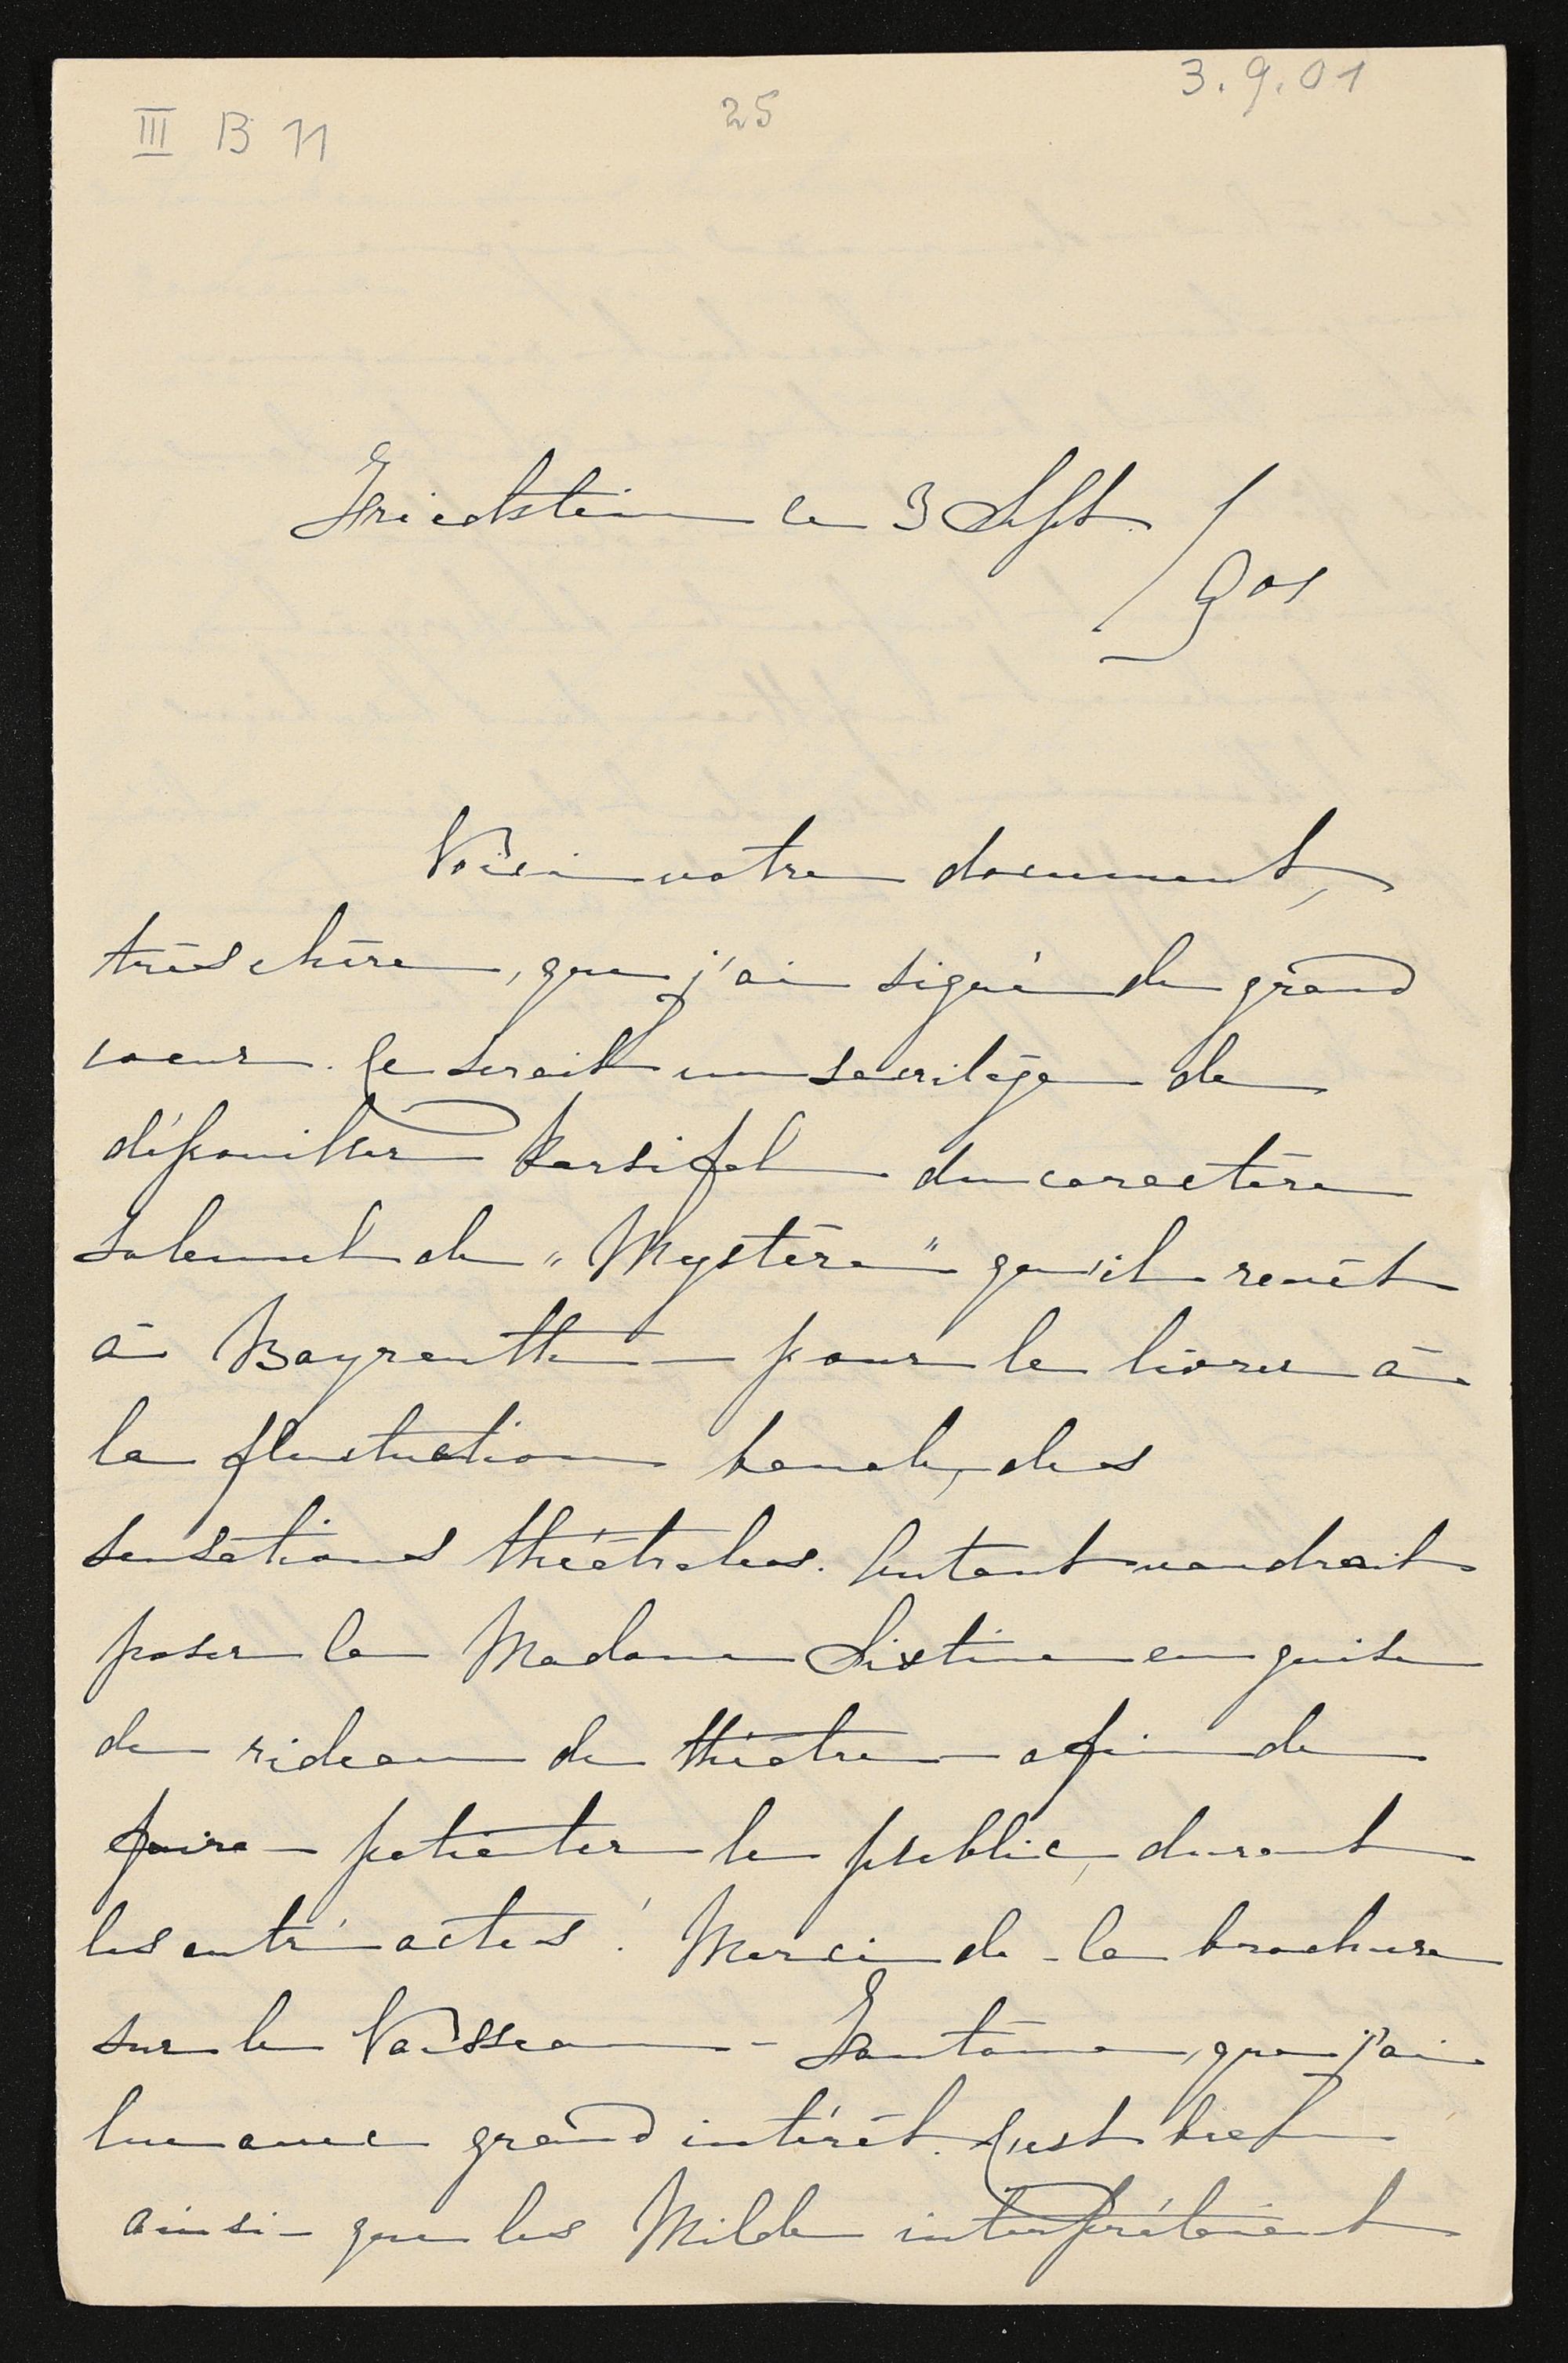 3.9.01
III B 11
25
Friedstein le 3 Sept /
901
Voici votre document,
très chère, que j'ai signé de grand
coeur. Ce serait un sacrilège de
dépouiller Parsifal du caractère
solennel de „Mystère" qu'il revêt
à Bayreuth — pour le livrer à
la fluctuation banale, des
sensations théâtrales. Autant vaudrait
poser la Madone Sixtine en guise
de rideau de théâtre afin de
faire patienter le public, durant
les entr'actes! Merci de la brochure
sur le Vaisseau-Fantôme, que j'ai
lue avec grand intérêt. C'est bien
ainsi que les Milde interprétaient